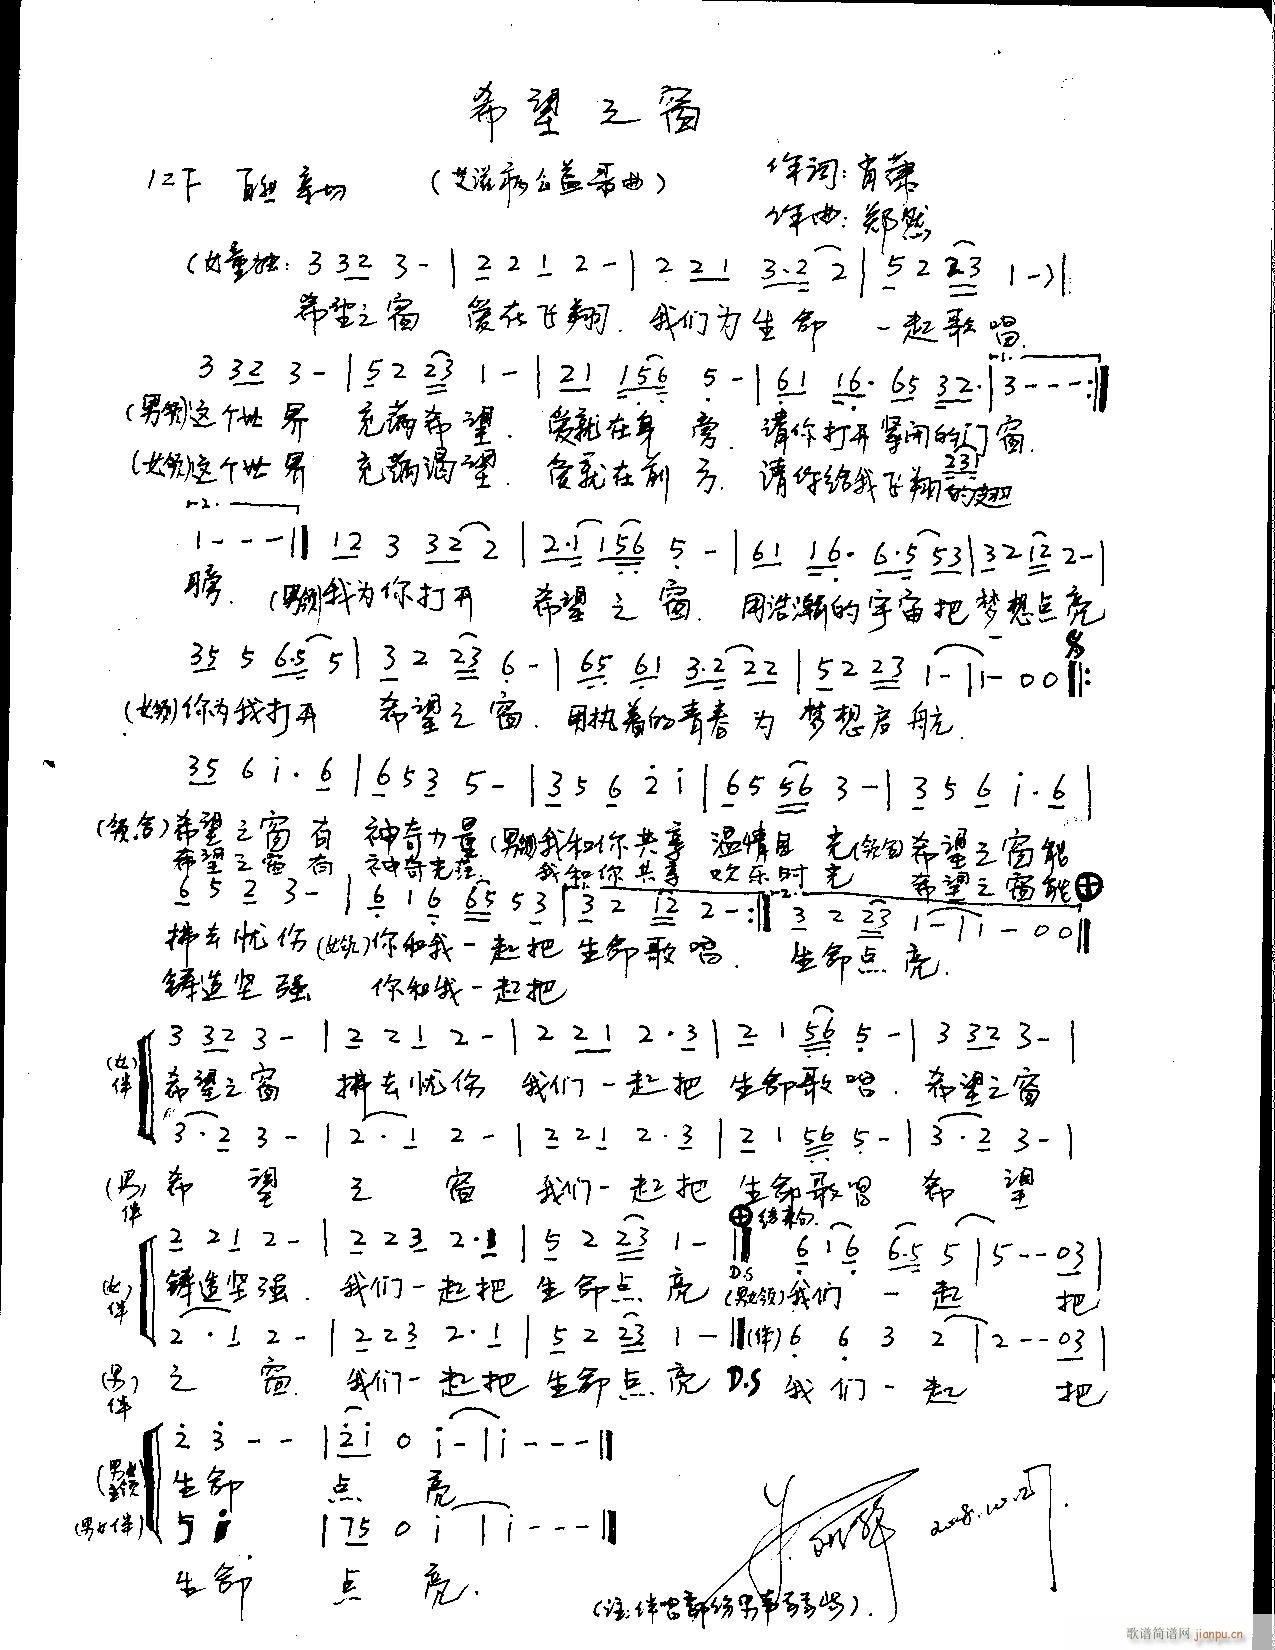 希望之窗
1=F 自然亲切 (艾滋病公益歌曲) 作词:肖萧
作曲:郑然
(女童独: 3 32 3 - | 2 2 1 2 - | 2 21 3·2 2 | 5 2 23 1 - )|
希望之窗 爱在飞翔. 我们为生命 一起歌唱.
3 32 3 - | 5 2 23 1 - | 21 156 5 - | 61 16· 65 32· | 3 - - - :||
(男领)这个世界 充满希望. 爱就在身旁. 请你打开紧闭的门窗.
(女领)这个世界 充满渴望. 爱就在前方. 请你给我飞翔的翅
231
1 - - - || 12 3 32 2 | 2·1 156 5 - | 61 16· 6·5 53 | 32 12 2 - |
膀. (男领)我为你打开 希望之窗. 用浩瀚的宇宙把梦想点亮
35 5 6·5 5 | 3 2 23 6 - | 65 61 3·2 22 | 52 23 1 - | 1 - 0 0 ||:
(女领)你为我打开 希望之窗. 用执着的青春为梦想启航.
35 6 i· 6 | 6 5 3 5 - | 3 5 6 2 i | 65 56 3 - | 3 5 6 i· 6 |
(领合)希望之窗有 神奇力量 (男领)我和你共享 温情目光 希望之窗能
希望之窗有 神奇光芒. 我和你共享 欢乐时光 希望之窗能
6 5 2 3 - | 6 1 6 65 53 | 3 2 12 2 - :|| 3 2 23 1 - | 1 - 0 0 ||
拂去忧伤 (女领)你和我一起把生命歌唱. 生命点亮.
铸造坚强 你和我一起把
3 32 3 - | 2 2 1 2 - | 2 21 2· 3 | 2 1 56 5 - | 3 32 3 - |
(女伴) 希望之窗 拂去忧伤 我们一起把 生命歌唱. 希望之窗
3· 2 3 - | 2· 1 2 - | 2 21 2· 3 | 2 1 56 5 - | 3· 2 3 - |
(男伴) 希望 之窗 我们一起把 生命歌唱 希望
结束句.
2 2 1 2 - | 2 2 3 2· 1 | 5 2 23 1 - || 6 1 6 6·5 5 | 5 - - 03 |
(女伴) 铸造坚强. 我们一起把 生命点亮 D.S (男女领)我们一起 把
2· 1 2 - | 2 2 3 2· 1 | 5 2 23 1 - || (伴) 6 6 3 2 | 2 - - 03 |
(男伴) 之窗. 我们一起把 生命点亮 D.S 我们一起 把
2 3 - - | 2i 0 i - | i - - - ||
生命 点亮
(男女伴) 5 i | 75 0 i | i - - - ||
生命 点亮.
2008.10.27.
歌谱简谱网 jianpu.cn